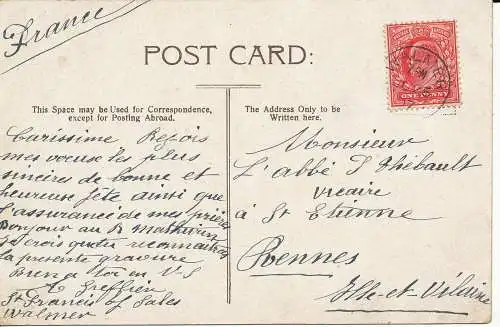 France
POST CARD:
This Space may be Used for Correspondence,
except for Posting Abroad.
The Address Only to be
Written here.
ONE PENNY
Carissime Reçois
mes voeux les plus
sincères de bonne et
heureuse fête ainsi que
l'assurance de mes prières
Bonjour au
Je crois que tu reconnaîtras
la presente gravure
Bien à toi en
St Francis of Sales
Walmer
Monsieur
L'abbé Thébault
Vicaire
à St Etienne
Rennes
Ille-et-Vilaine